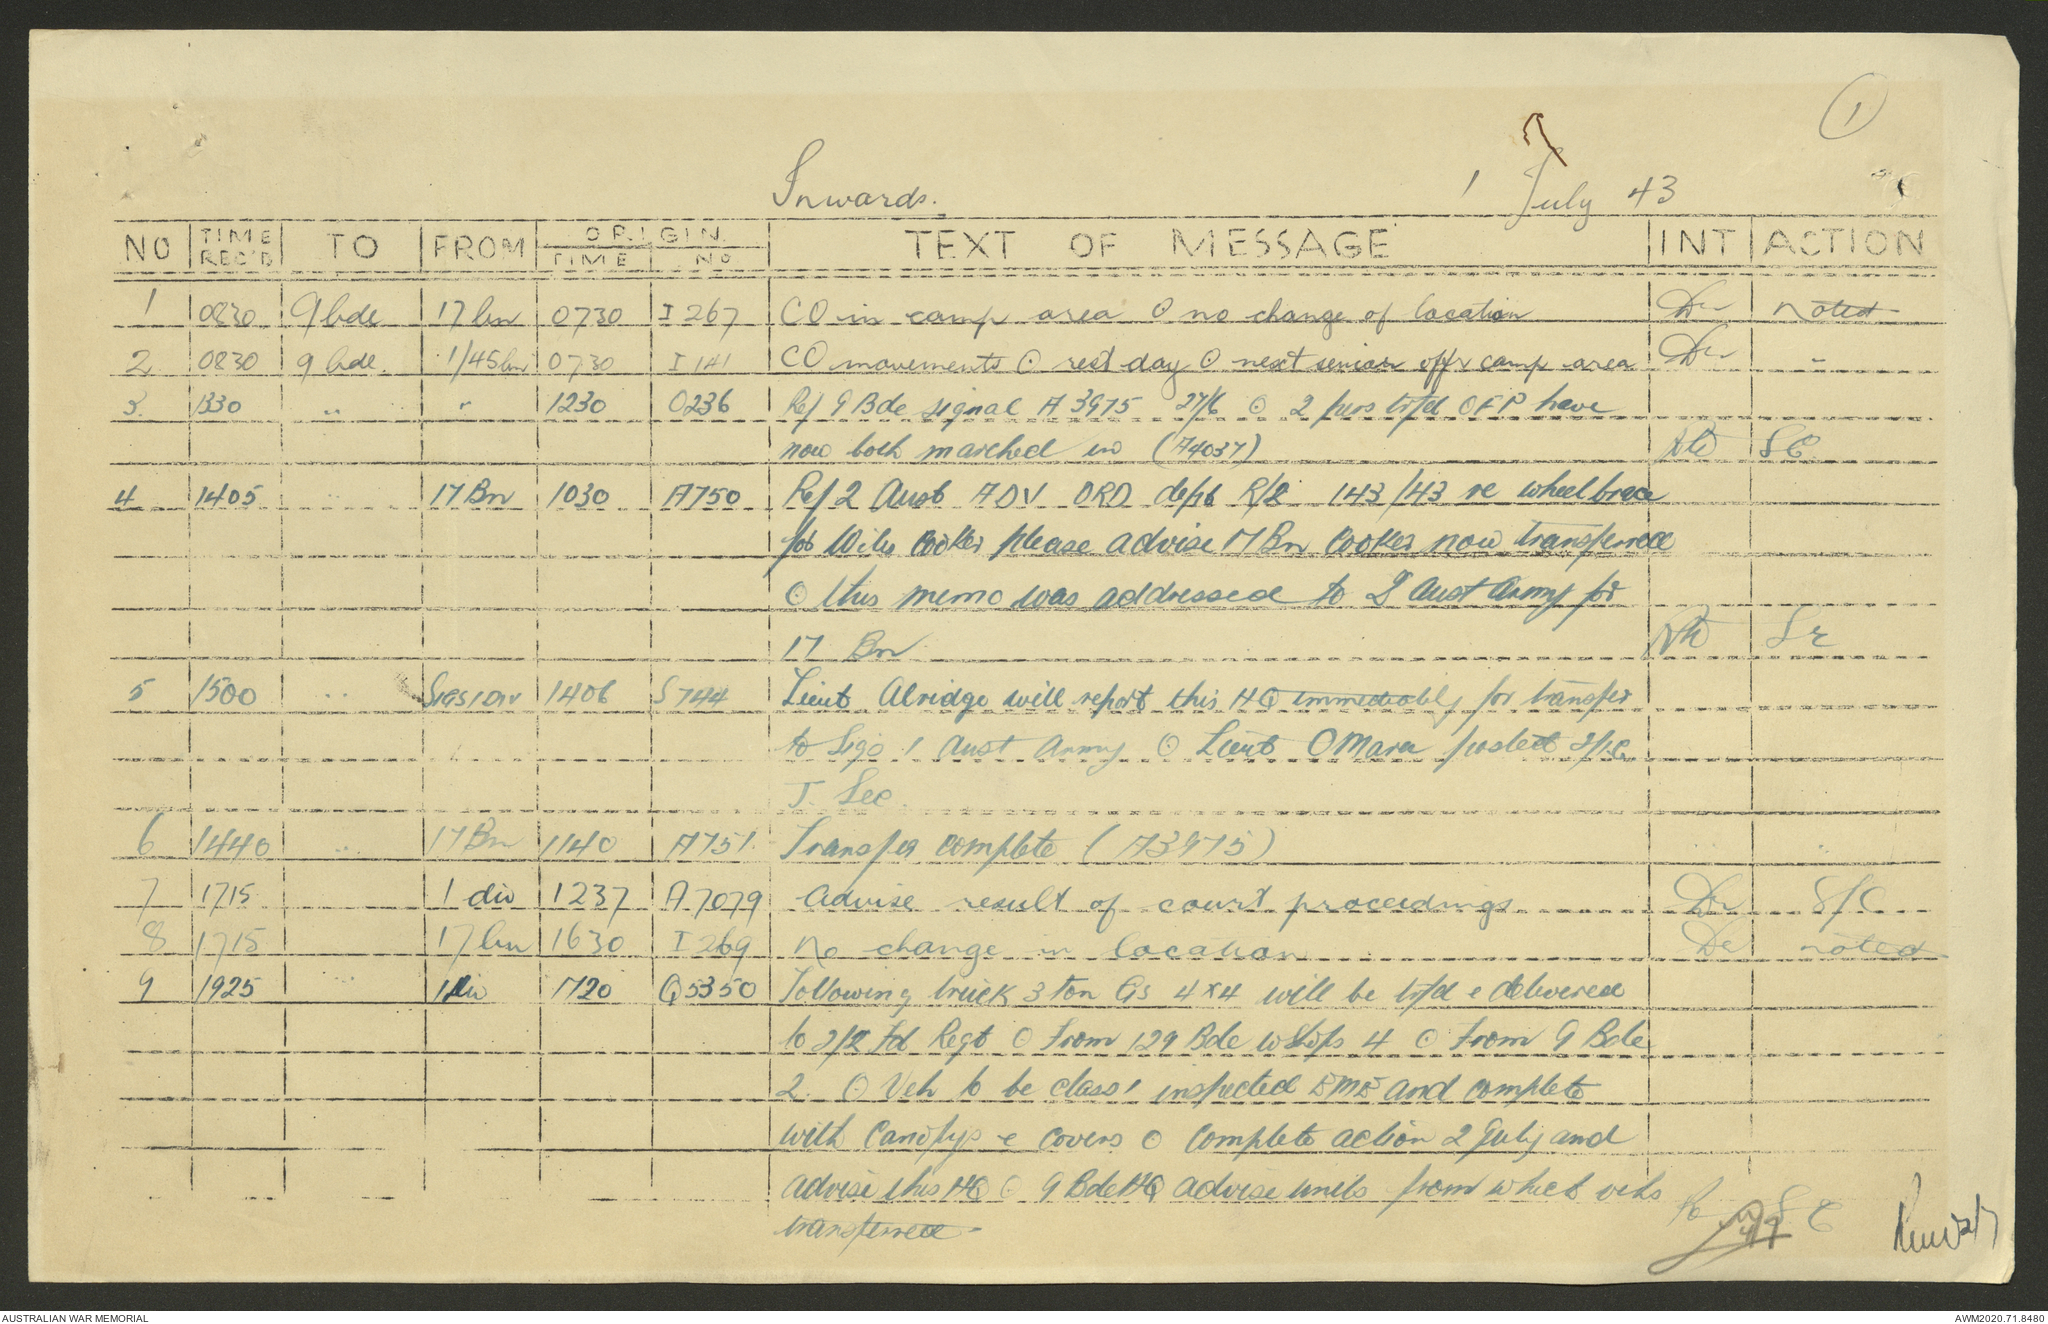 1
Inwards. 1 July 43
NO TIME REC'D TO FROM ORIGIN TIME NO TEXT OF MESSAGE INT ACTION
1 0830 9 bde 17 bn 0730 I 267 CO in camp area ⊙ no change of location noted
2 0830 9 bde. 1/45 bn 0730 I 141 CO movements ⊙ rest day ⊙ next senior offr camp area "
3. 1330 " " 1230 O236 Ref 9 Bde signal A 3975 27/6 ⊙ 2 pers trfd OFP have
now both marched in (A4037) SC
4 1405 " 17 Bn 1030 A750 Ref 2 Aust ADV ORD depot R/2 143/43 re wheel brace
for Wiles Cooker please advise 17 Bn Cooker now transferred
⊙ this memo was addressed to 2 Aust Army for
17 Bn SC
5 1500 " Sigs 1 Div 1406 S744 Lieut Alridge will report this HQ immediately for transfer
to Sigs 1 Aust Army ⊙ Lieut OMara posted 2/IC
J. Sec.
6 1440 " 17 Bn 1140 A751 Transfer complete (A3975) " "
7 1715 1 div 1237 A7079 Advise result of court proceedings S/C
8 1715 17 bn 1630 I 269 No change in location noted
9 1925 " 1 Div 1720 Q5350 Following truck 3 ton GS 4x4 will be trfd & delivered
to 2/2 Fd Regt ⊙ From 129 Bde wShops 4 ⊙ From 9 Bde
2. ⊙ Veh to be class 1 inspected EME and complete
with Canopys & covers ⊙ Complete action 2 July and
advise this HQ ⊙ 9 Bde HQ advise units from which vehs
transferred SC
AUSTRALIAN WAR MEMORIAL AWM2020.71.8480